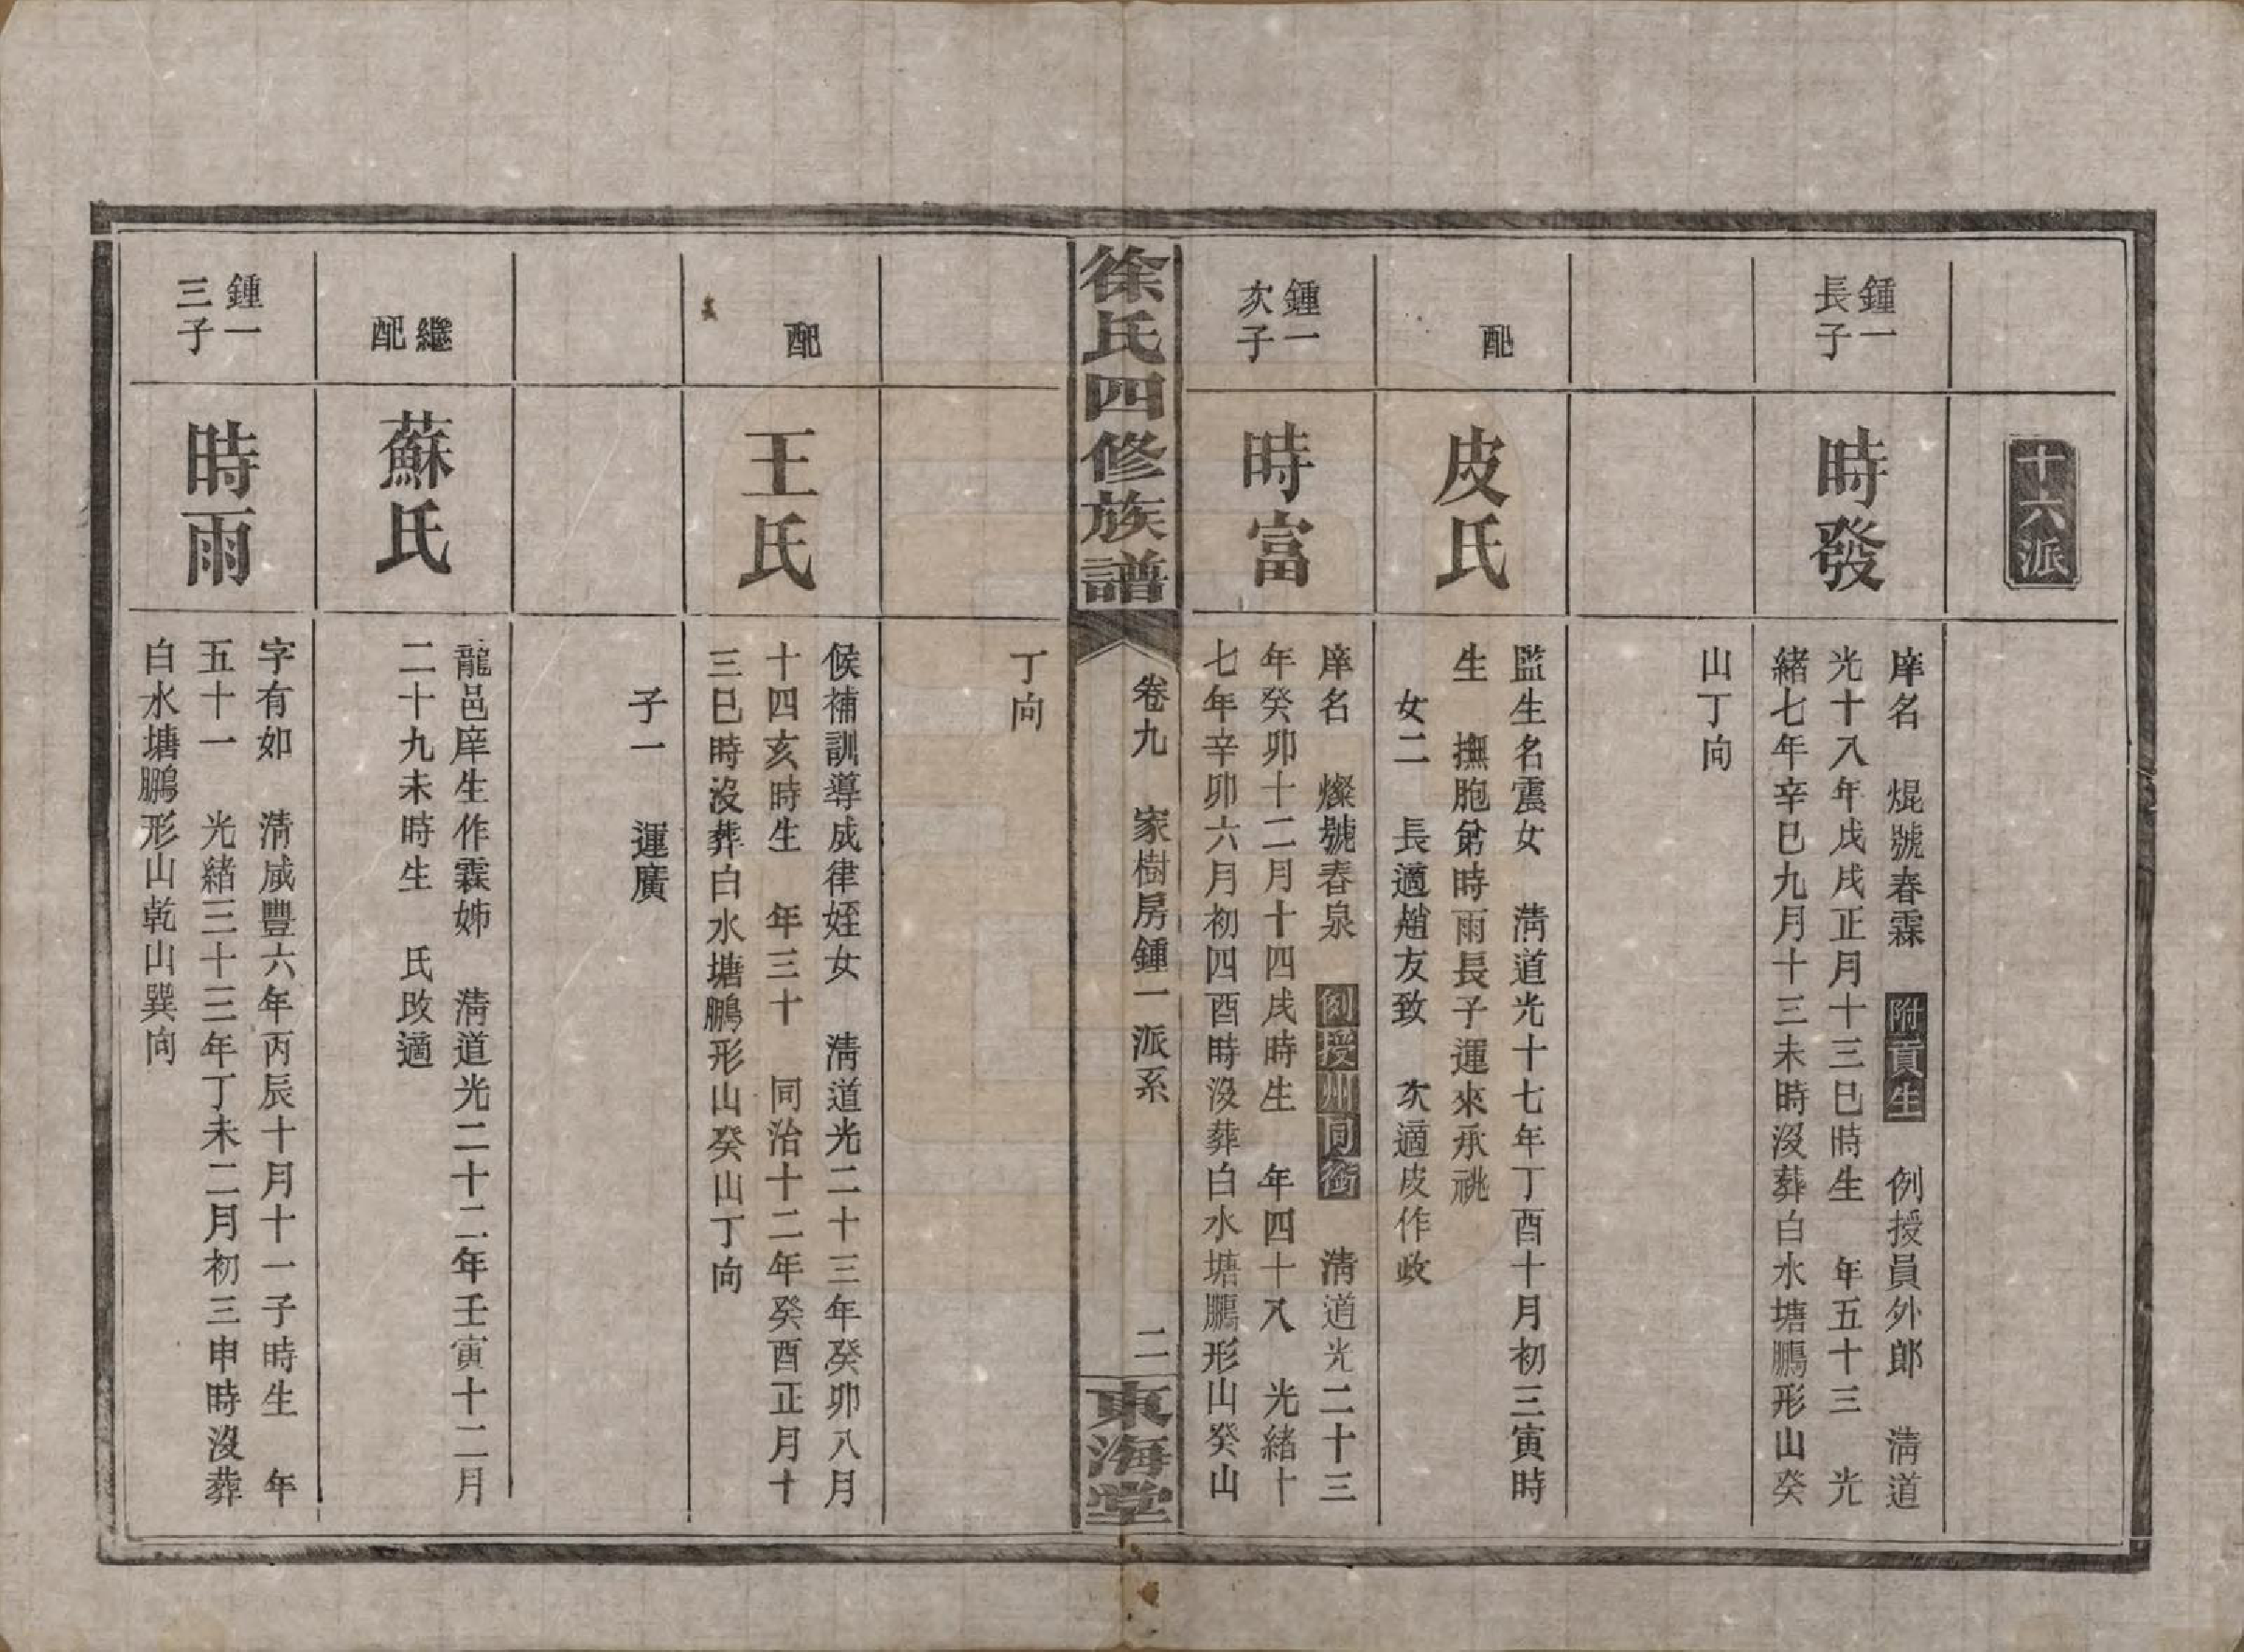 十六派
鍾一
長子
時發
庠名　焜號春霖　附貢生　例授員外郎　淸道
光十八年戊戌正月十三巳時生　年五十三　光
緒七年辛巳九月十三未時沒葬白水塘鵬形山癸
山丁向
配
皮氏
監生名震女　淸道光十七年丁酉十月初三寅時
生　撫胞弟時雨長子運來承祧
女二　長適趙友致　次適皮作政
鍾一
次子
時富
庠名　燦號春泉　例授州同銜　淸道光二十三
年癸卯十二月十四戌時生　年四十八　光緒十
七年辛卯六月初四酉時沒葬白水塘鵬形山癸山
徐氏四修族譜
卷九　家樹房鍾一派系
二
東海堂
丁向
配
王氏
候補訓導成律姪女　淸道光二十三年癸卯八月
十四亥時生　年三十　同治十二年癸酉正月十
三巳時沒葬白水塘鵬形山癸山丁向
子一　運廣
繼
配
蘇氏
龍邑庠生作霖姊　淸道光二十二年壬寅十二月
二十九未時生　氏改適
鍾一
三子
時雨
字有如　淸咸豐六年丙辰十月十一子時生　年
五十一　光緒三十三年丁未二月初三申時沒葬
白水塘鵬形山乾山巽向